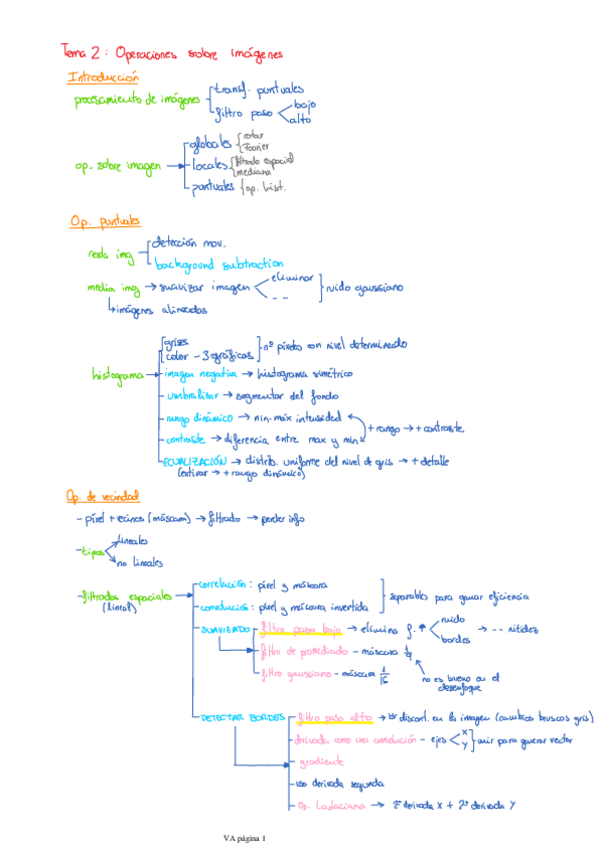 Tema 2: Operaciones sobre imágenes
Introducción
procesamiento de imágenes
transf. puntuales
filtro paso
bajo
alto
op. sobre imagen
globales
rotar
Fourier
locales
filtrado espacial
mediana
puntuales
op. hist.
Op. puntuales
resta img
detección mov.
background subtraction
media img → suavizar imagen
eliminar
- -
ruido gaussiano
imágenes alineadas
histograma
grises
color - 3 gráficos
nº píxeles con nivel determinado
imagen negativa → histograma simétrico
umbralizar → segmentar del fondo
rango dinámico → min-máx intensidad
contraste → diferencia entre max y min
+ rango → + contraste
ECUALIZACIÓN → distrib. uniforme del nivel de gris → + detalle
(estirar → + rango dinámico)
Op. de vecindad
- píxel + vecinos (máscara) → filtrado → perder info
- tipos
lineales
no lineales
- filtrados espaciales
(lineal)
correlación: píxel y máscara
convolución: píxel y máscara invertida
separables para ganar eficiencia
SUAVIZADO
filtro paso bajo → elimina f. ↑
ruido
bordes
→ - - nitidez
filtro de promediado - máscara 1/9
filtro gaussiano - máscara 1/16
no es bueno en el
desenfoque
DETECTAR BORDES
filtro paso alto → discont. en la imagen (cambios bruscos gris)
derivada como una convolución - ejes
x
y
unir para generar vector
gradiente
uso derivada segunda
Op. Laplaciano → 2ª derivada X + 2ª derivada Y
VA página 1